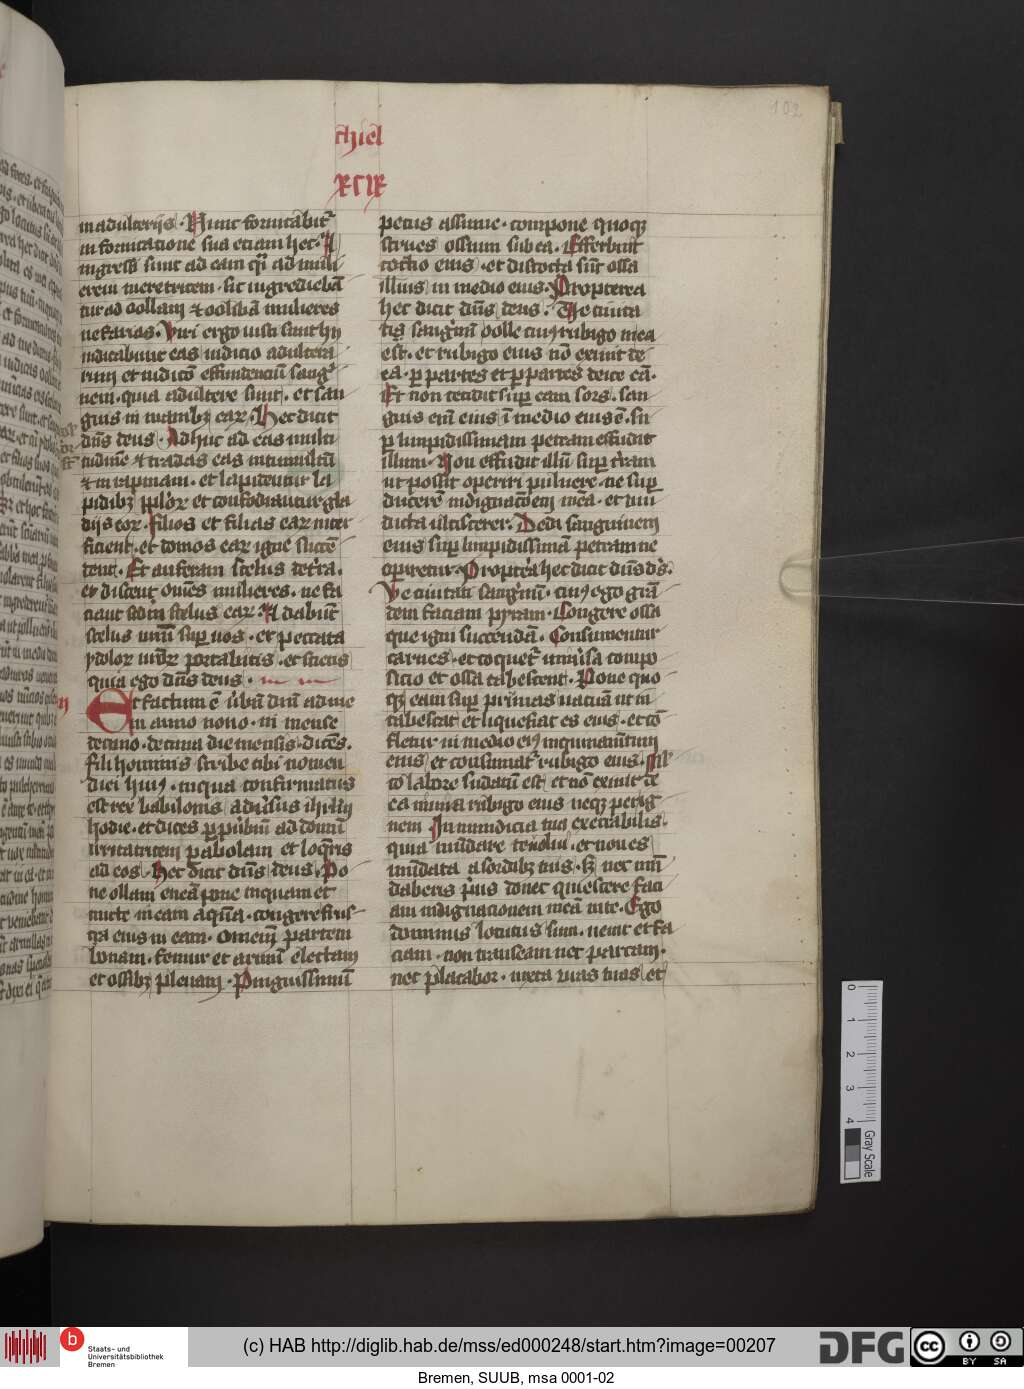 102
chiel
xcix
in adulterijs. Nunc fornicabit᷑
in fornicatione sua etiam hec. Et
ingressi sunt ad eam q̄si ad muli
erem meretricem. sic ingrediebāt
tur ad oollam ⁊ oolibā mulieres
nefarias. Viri ergo iusti sunt hij
iudicabunt eas iudicio adultera
rum et iudicio effundenciū sangᷓ
nem. quia adultere sunt. et san
guis in manibꝫ eaꝝ. Hec dicit
dn̄s deus. Adhuc ad eas multi
tudinē ⁊ tradas eas in tumultū
⁊ in rapinam. et lapidentur la
pidibꝫ pploꝝ et confodiantur gla
dijs eoꝝ. Filios et filias eaꝝ inter
ficient. et domos eaꝝ igne succē
dent. Et auferam scelus de t̄ra.
et discent om̄es mulieres. ne fa
ciant scdm scelus eaꝝ. Et dabunt
scelus vr̄m sup̄ uos. et peccata
ydoloꝝ vr̄oꝝ portabitis. et scietis
quia ego dn̄s deus.
Et factum ē ūbū dn̄i ad me
in anno nono. in mense
decimo. decima die mensis. dicēs.
fili hominis scribe tibi nomen
diei huiꝰ. in qua confirmatus
est rex babilonis aduersus ihrl̄m
hodie. et dices ꝑ puerbiū ad domū
irritatricem pabolam et loq̄ris
ad eos. Hec dicit dn̄s deus. Po
ne ollam eneā pone inquam et
mitte in eam aquā. congere frus
ta eius in eam. omnem partem
bonam. femur et armū electam
et ossibꝫ plenam. Pinguissimū
pecus assume. compone quoqꝫ
strues ossium sub ea. Efferbuit
coctio eius. et discocta sūt ossa
illius in medio eius. Propterea
hec dicit dn̄s deus. Ve ciuita
tis sangnim̄ oolle cuiꝰ rubigo in ea
est. et rubigo eius nō exiuit de
ea. ꝑ partes et ꝑ partes eiice eā.
Et non cecidit sup̄ eam sors. san
guis em̄ eius ī medio eius ē. su
ꝑ limpidissimam petram effudit
illum. Non effudit illū sup̄ t̄ram
ut possit operiri puluere. ne sup̄
ducerem indignacōem meā. et vin
dicta ulciscerer. Dedi sanguinem
eius sup̄ limpidissimā petram ne
operiretur. Propterea hec dicit dn̄s ds̄.
Ve ciuitati sangnim̄. cuiꝰ ego grā
dem faciam pyram. Congere ossa
que igni succendā. Consumentur
carnes. et coquet᷑ uniūsa compo
sicio et ossa tabescent. Pone quo
qꝫ eam sup̄ prunas uacuā ut in
calescat et liquefiat es eius. et cō
fletur in medio eiꝰ inquinamentum
eius et consumat᷑ rubigo eius. Mul
to labore sudatū est et nō exiuit de
ea nimia rubigo eius neqꝫ per ig
nem. Inmundicia tua execrabilis.
quia mūdare te uolui. et non es
mūdata a sordibꝫ tuis. Sꝫ nec mū
daberis prius donec quiescere faci
am indignacionem meā in te. Ego
dominus locutus sum. ueniet et fa
ciam. non transeam nec parcam.
nec placabor. iuxta uias tuas et
0
1
2
3
4
Gray Scale
Staats- und
Universitätsbibliothek
Bremen
(c) HAB http://diglib.hab.de/mss/ed000248/start.htm?image=00207
DFG
cc
BY SA
Bremen, SUUB, msa 0001-02